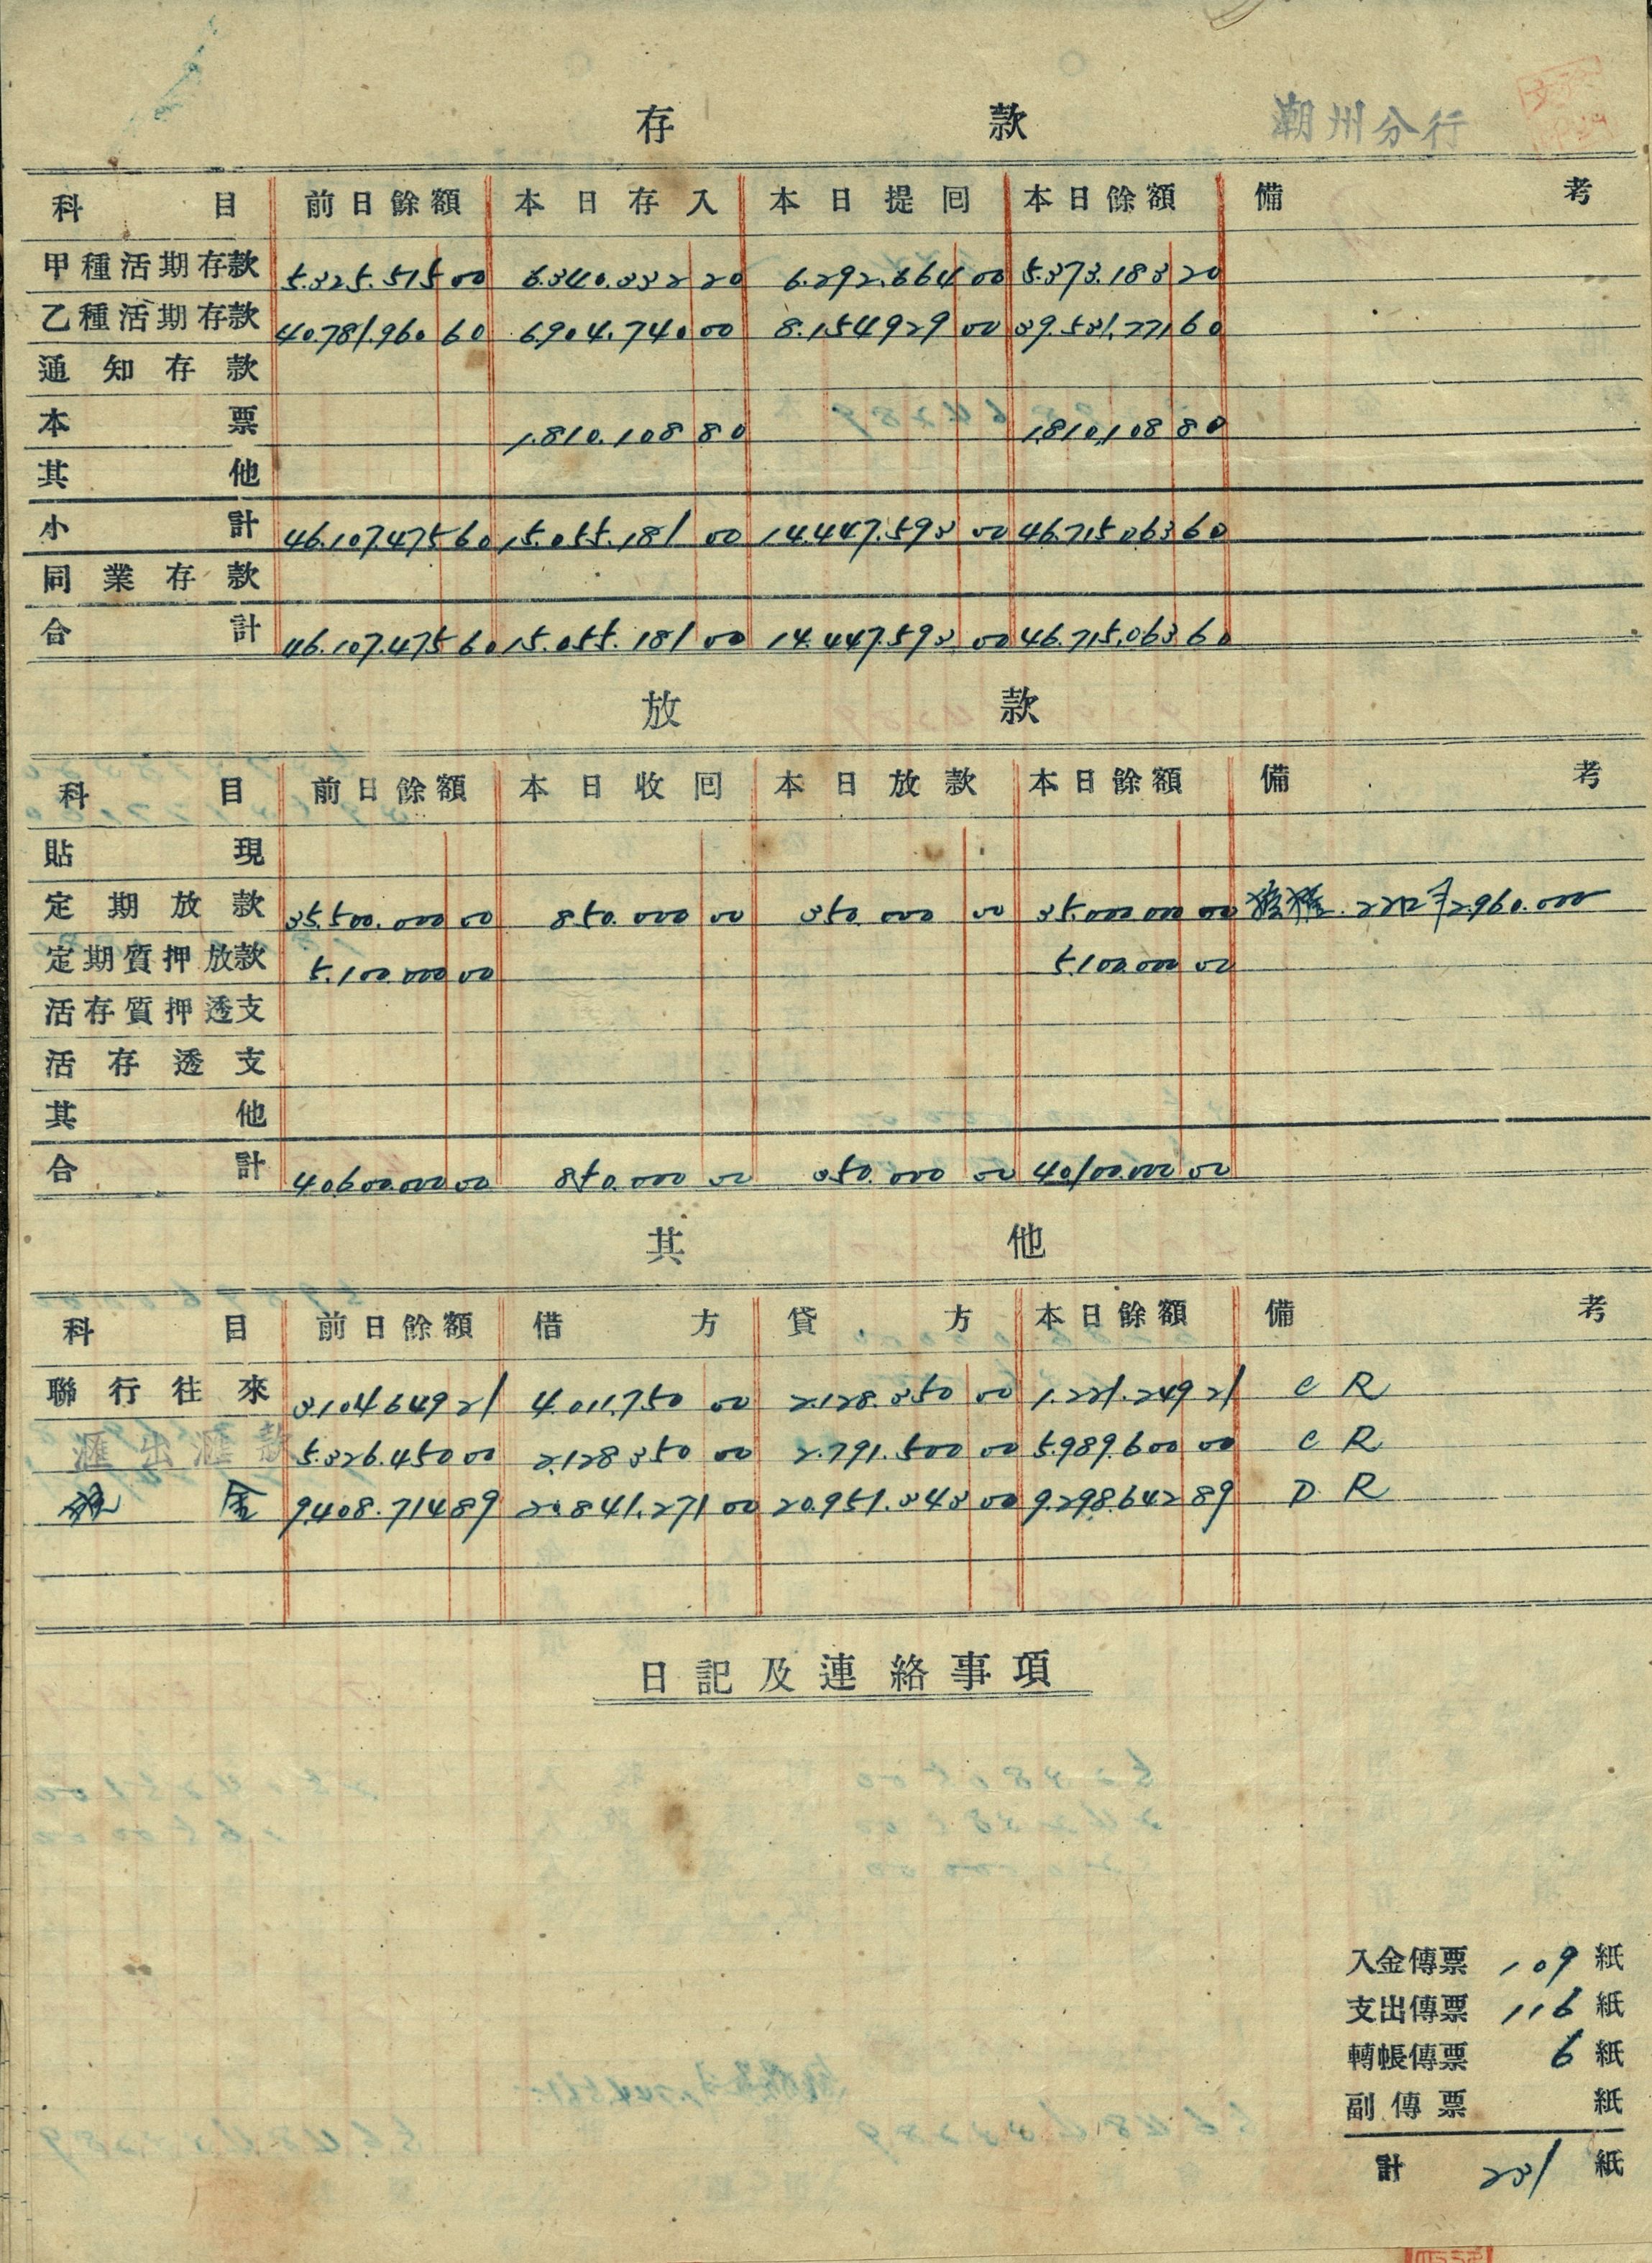 存款 潮州分行
科目 前日餘額 本日存入 本日提囘 本日餘額 備考
甲種活期存款 5.325.515 00 6.340.332 20 6.292.664 00 5.373.183 20
乙種活期存款 40.781.960 60 6.904.740 00 8.154.929 00 39.531.771 60
通知存款
本票 1.810.108 80 1.810.108 80
其他
小計 46.107.475 60 15.055.181 00 14.447.593 00 46.715.063 60
同業存款
合計 46.107.475 60 15.055.181 00 14.447.593 00 46.715.063 60
放款
科目 前日餘額 本日收囘 本日放款 本日餘額 備考
貼現
定期放款 35.500.000 00 850.000 00 350.000 00 35.000.000 00 2.960.000
定期質押放款 5.100.000 00 5.100.000 00
活存質押透支
活存透支
其他
合計 40.600.000 00 850.000 00 350.000 00 40.100.000 00
其他
科目 前日餘額 借方 貸方 本日餘額 備考
聯行往來 3.104.649 21 4.011.750 00 2.128.350 00 1.221.249 21 C R
匯出匯款 5.326.450 00 2.128.350 00 2.791.500 00 5.989.600 00 C R
現金 9.408.714 89 20.841.271 00 20.951.343 00 9.298.642 89 D R
日記及連絡事項
入金傳票 109 紙
支出傳票 116 紙
轉帳傳票 6 紙
副傳票 紙
計 231 紙